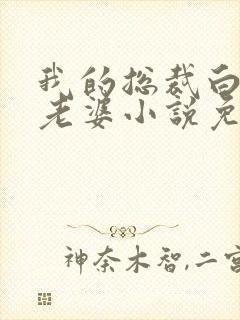 我的总裁白
老婆小説免
神奈木智,二宫